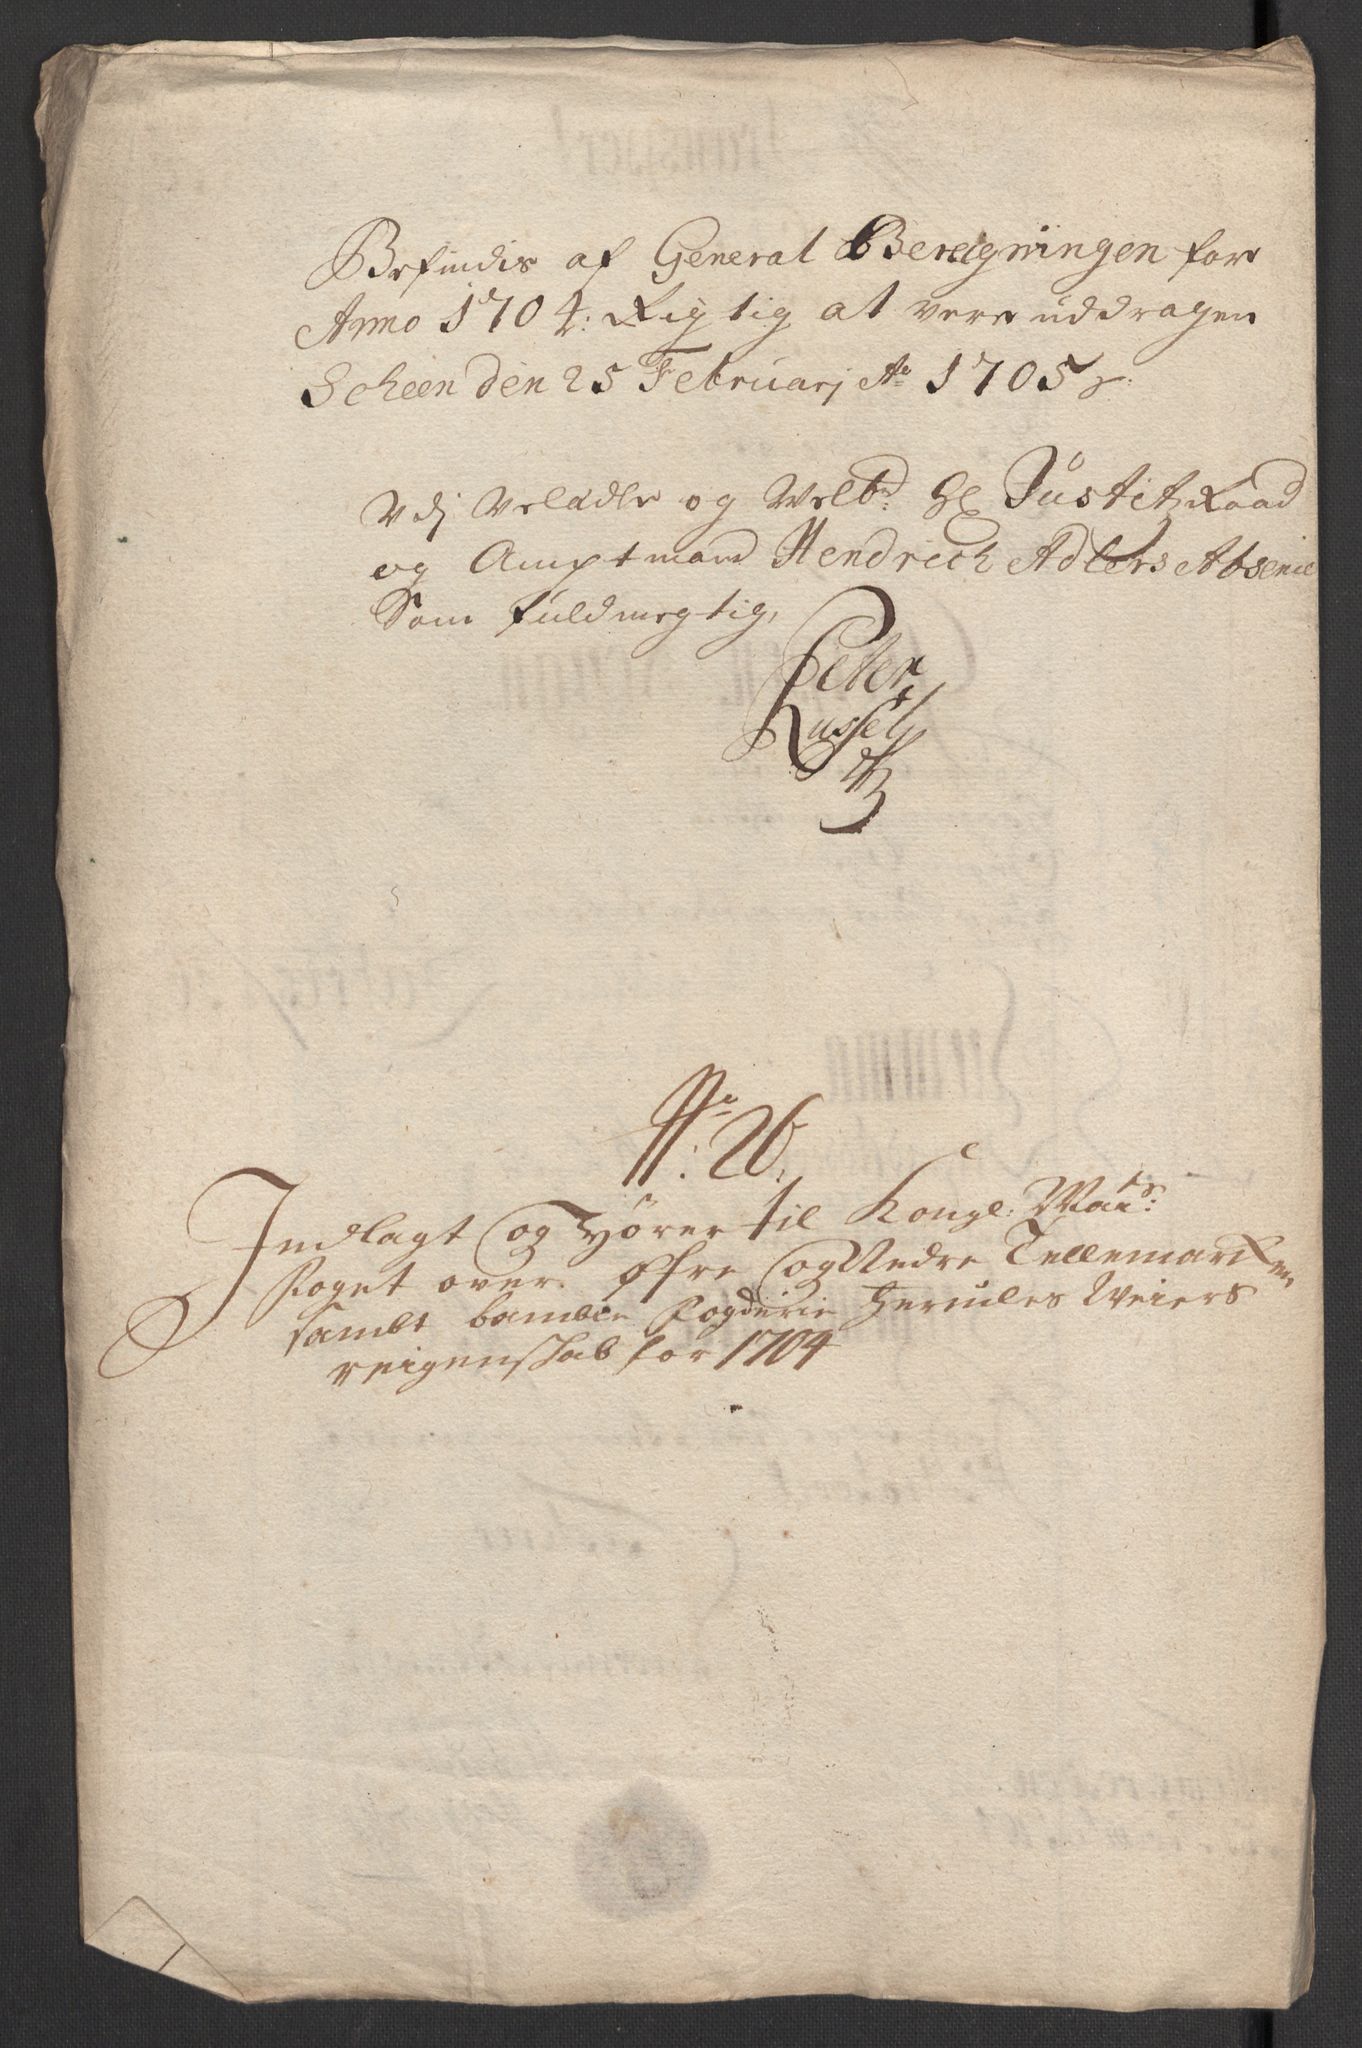 Befindis af General Beregningen for
Anno 1704: Rigtig at vere uddragen
Scheen den 25 Februarj Ao 1705
Udj Veladle og Welb: Hr Justitz Raad
og Amptmand Hendrich Adlers Absence
Som fuldmegtig,
Peter
Russel
No: 26.
Indlagt og hører til Kongl: Mats:
foget over øfre og Nedre Tellemarken
sambt bamble fogderie Herculus Weiers
reigenskab for 1704